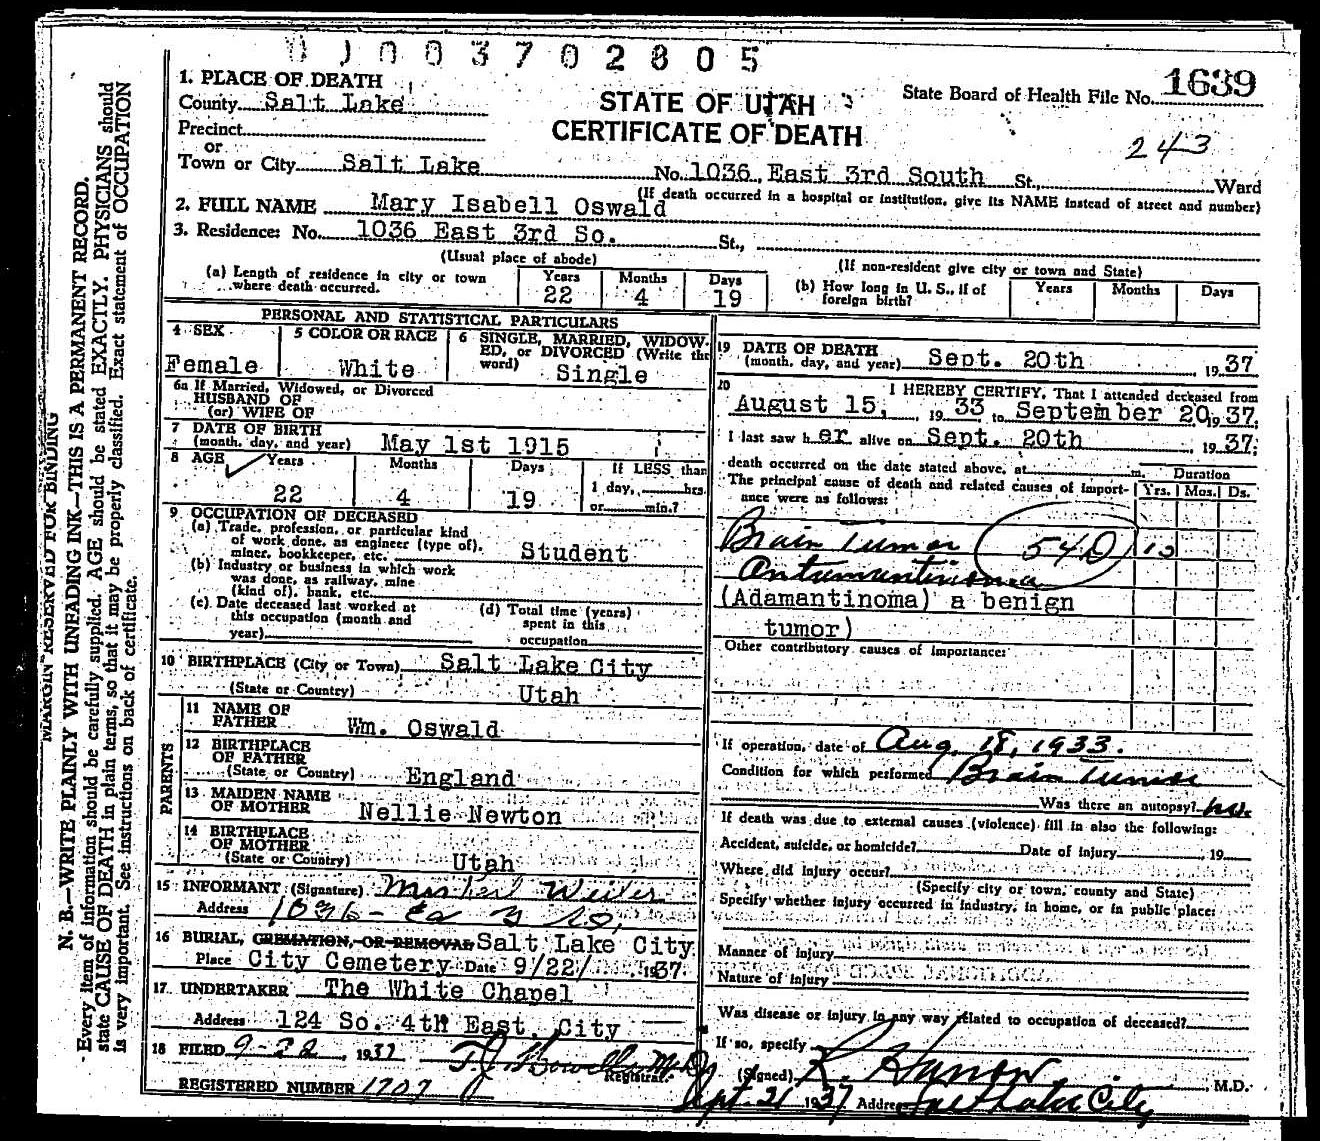 003702805
1. PLACE OF DEATH
County Salt Lake
STATE OF UTAH
CERTIFICATE OF DEATH
State Board of Health File No. 1639
243
Precinct
or
Town or City Salt Lake No. 1036 East 3rd South St., Ward
(If death occurred in a hospital or institution, give its NAME instead of street and number)
2. FULL NAME Mary Isabell Oswald
3. Residence: No. 1036 East 3rd So. St.,
(Usual place of abode) (If non-resident give city or town and State)
(a) Length of residence in city or town where death occurred.
Years Months Days
22 4 19
(b) How long in U. S., if of foreign birth?
Years Months Days
PERSONAL AND STATISTICAL PARTICULARS
4 SEX
Female
5 COLOR OR RACE
White
6 SINGLE, MARRIED, WIDOWED, or DIVORCED (Write the word)
Single
6a If Married, Widowed, or Divorced
HUSBAND OF
(or) WIFE OF
7 DATE OF BIRTH
(month, day, and year) May 1st 1915
8 AGE Years Months Days If LESS than
1 day, hrs.
or min.?
22 4 19
9 OCCUPATION OF DECEASED
(a) Trade, profession, or particular kind
of work done, as engineer (type of),
miner, bookkeeper, etc. Student
(b) Industry or business in which work
was done, as railway, mine
(kind of), bank, etc.
(c) Date deceased last worked at
this occupation (month and
year)
(d) Total time (years)
spent in this
occupation
10 BIRTHPLACE (City or Town) Salt Lake City
(State or Country) Utah
PARENTS
11 NAME OF
FATHER Wm. Oswald
12 BIRTHPLACE
OF FATHER
(State or Country) England
13 MAIDEN NAME
OF MOTHER Nellie Newton
14 BIRTHPLACE
OF MOTHER
(State or Country) Utah
15 INFORMANT (Signature)
Address 1036
16 BURIAL, CREMATION, OR REMOVAL Salt Lake City
Place City Cemetery Date 9/22/ 1937
17 UNDERTAKER The White Chapel
Address 124 So. 4th East, City
18 FILED 9-22, 1937 M.D.
Registrar.
REGISTERED NUMBER 1707
19 DATE OF DEATH
(month, day, and year) Sept. 20th, 1937
20 I HEREBY CERTIFY, That I attended deceased from
August 15, 1933 to September 20, 1937,
I last saw her alive on Sept. 20th, 1937;
death occurred on the date stated above, at m. Duration
The principal cause of death and related causes of importance were as follows: Yrs. Mos. Ds.
Brain Tumor 54D
(Adamantinoma) a benign
tumor)
Other contributory causes of importance:
If operation, date of Aug. 18, 1933.
Condition for which performed Brain Tumor
Was there an autopsy? no.
If death was due to external causes (violence) fill in also the following:
Accident, suicide, or homicide? Date of injury, 19
Where did injury occur?
(Specify city or town, county and State)
Specify whether injury occurred in industry, in home, or in public place:
Manner of injury
Nature of injury
Was disease or injury in any way related to occupation of deceased?
If so, specify
(Signed) M.D.
Sept. 21 1937 Address Salt Lake City
MARGIN RESERVED FOR BINDING
N. B.—WRITE PLAINLY WITH UNFADING INK—THIS IS A PERMANENT RECORD.
Every item of information should be carefully supplied. AGE should be stated EXACTLY. PHYSICIANS should
state CAUSE OF DEATH in plain terms, so that it may be properly classified. Exact statement of OCCUPATION
is very important. See instructions on back of certificate.